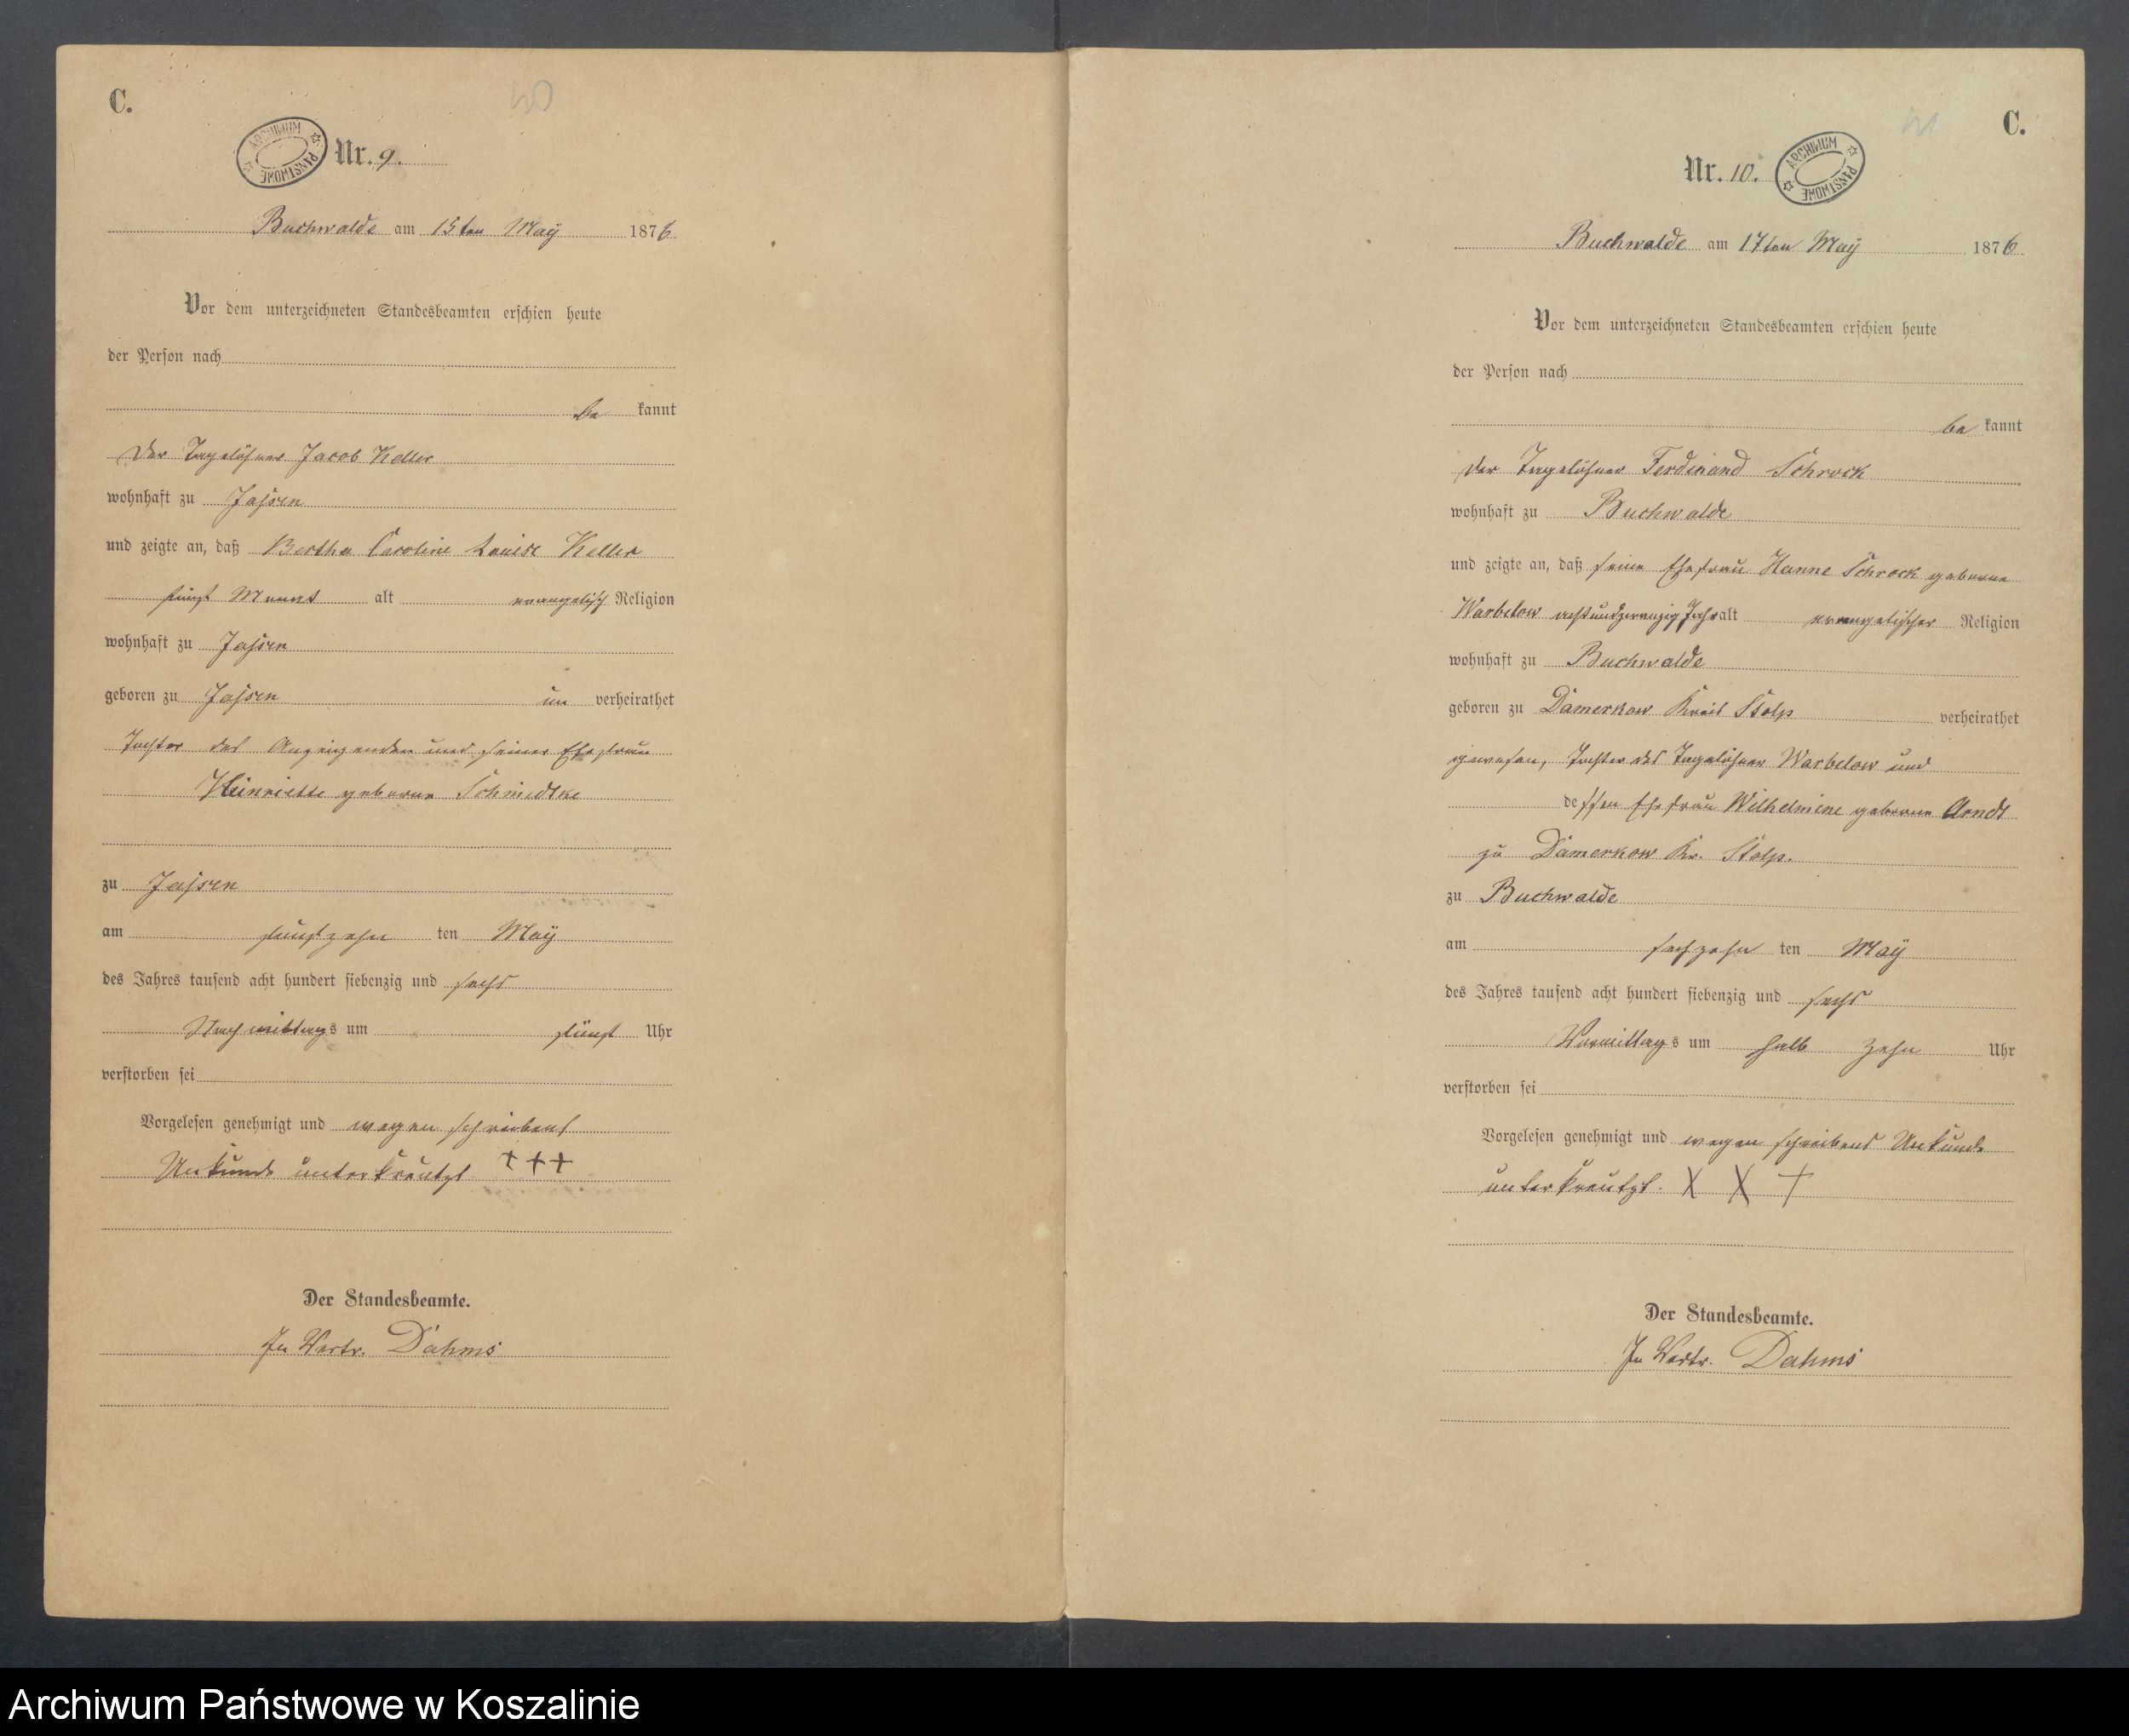 C.
ARCHIWUM PAŃSTWOWE
Nr. 9.
Buchwalde am 15ten Maÿ 1876
Vor dem unterzeichneten Standesbeamten erschien heute
der Person nach
be kannt
Der Tagelöhner Jacob Keller
wohnhaft zu Jassen
und zeigte an, daß Bertha Caroline Louise Keller
fünf Monat alt evangelisch Religion
wohnhaft zu Jassen
geboren zu Jassen un verheirathet
Tochter des Anzeigenden und seiner Ehefrau
Heinriette geborne Schmedtke
zu Jassen
am fünfzehn ten Maÿ
des Jahres tausend acht hundert siebenzig und sechs
Nachmittags um fünf Uhr
verstorben sei
Vorgelesen genehmigt und wegen schreibens
Unkunde unterkreutzt +++
Der Standesbeamte.
In Vertr. Dahms
C.
Nr. 10.
ARCHIWUM PAŃSTWOWE
Buchwalde am 17ten Maÿ 1876
Vor dem unterzeichneten Standesbeamten erschien heute
der Person nach
be kannt
Der Tagelöhner Ferdinand Schrock
wohnhaft zu Buchwalde
und zeigte an, daß seine Ehefrau Hanne Schrock geborne
Warbelow achtundzwanzig Jahr alt evangelischer Religion
wohnhaft zu Buchwalde
geboren zu Damerkow Kreis Stolp verheirathet
gewesen, Tochter des Tagelöhner Warbelow und
dessen Ehefrau Wilhelmine geborne Arndt
zu Damerkow Kr. Stolp.
zu Buchwalde
am sechzehn ten Maÿ
des Jahres tausend acht hundert siebenzig und sechs
Vormittags um halb zehn Uhr
verstorben sei
Vorgelesen genehmigt und wegen schreibens Unkunde
unterkreutzt. X X +
Der Standesbeamte.
In Vertr. Dahms
Archiwum Państwowe w Koszalinie